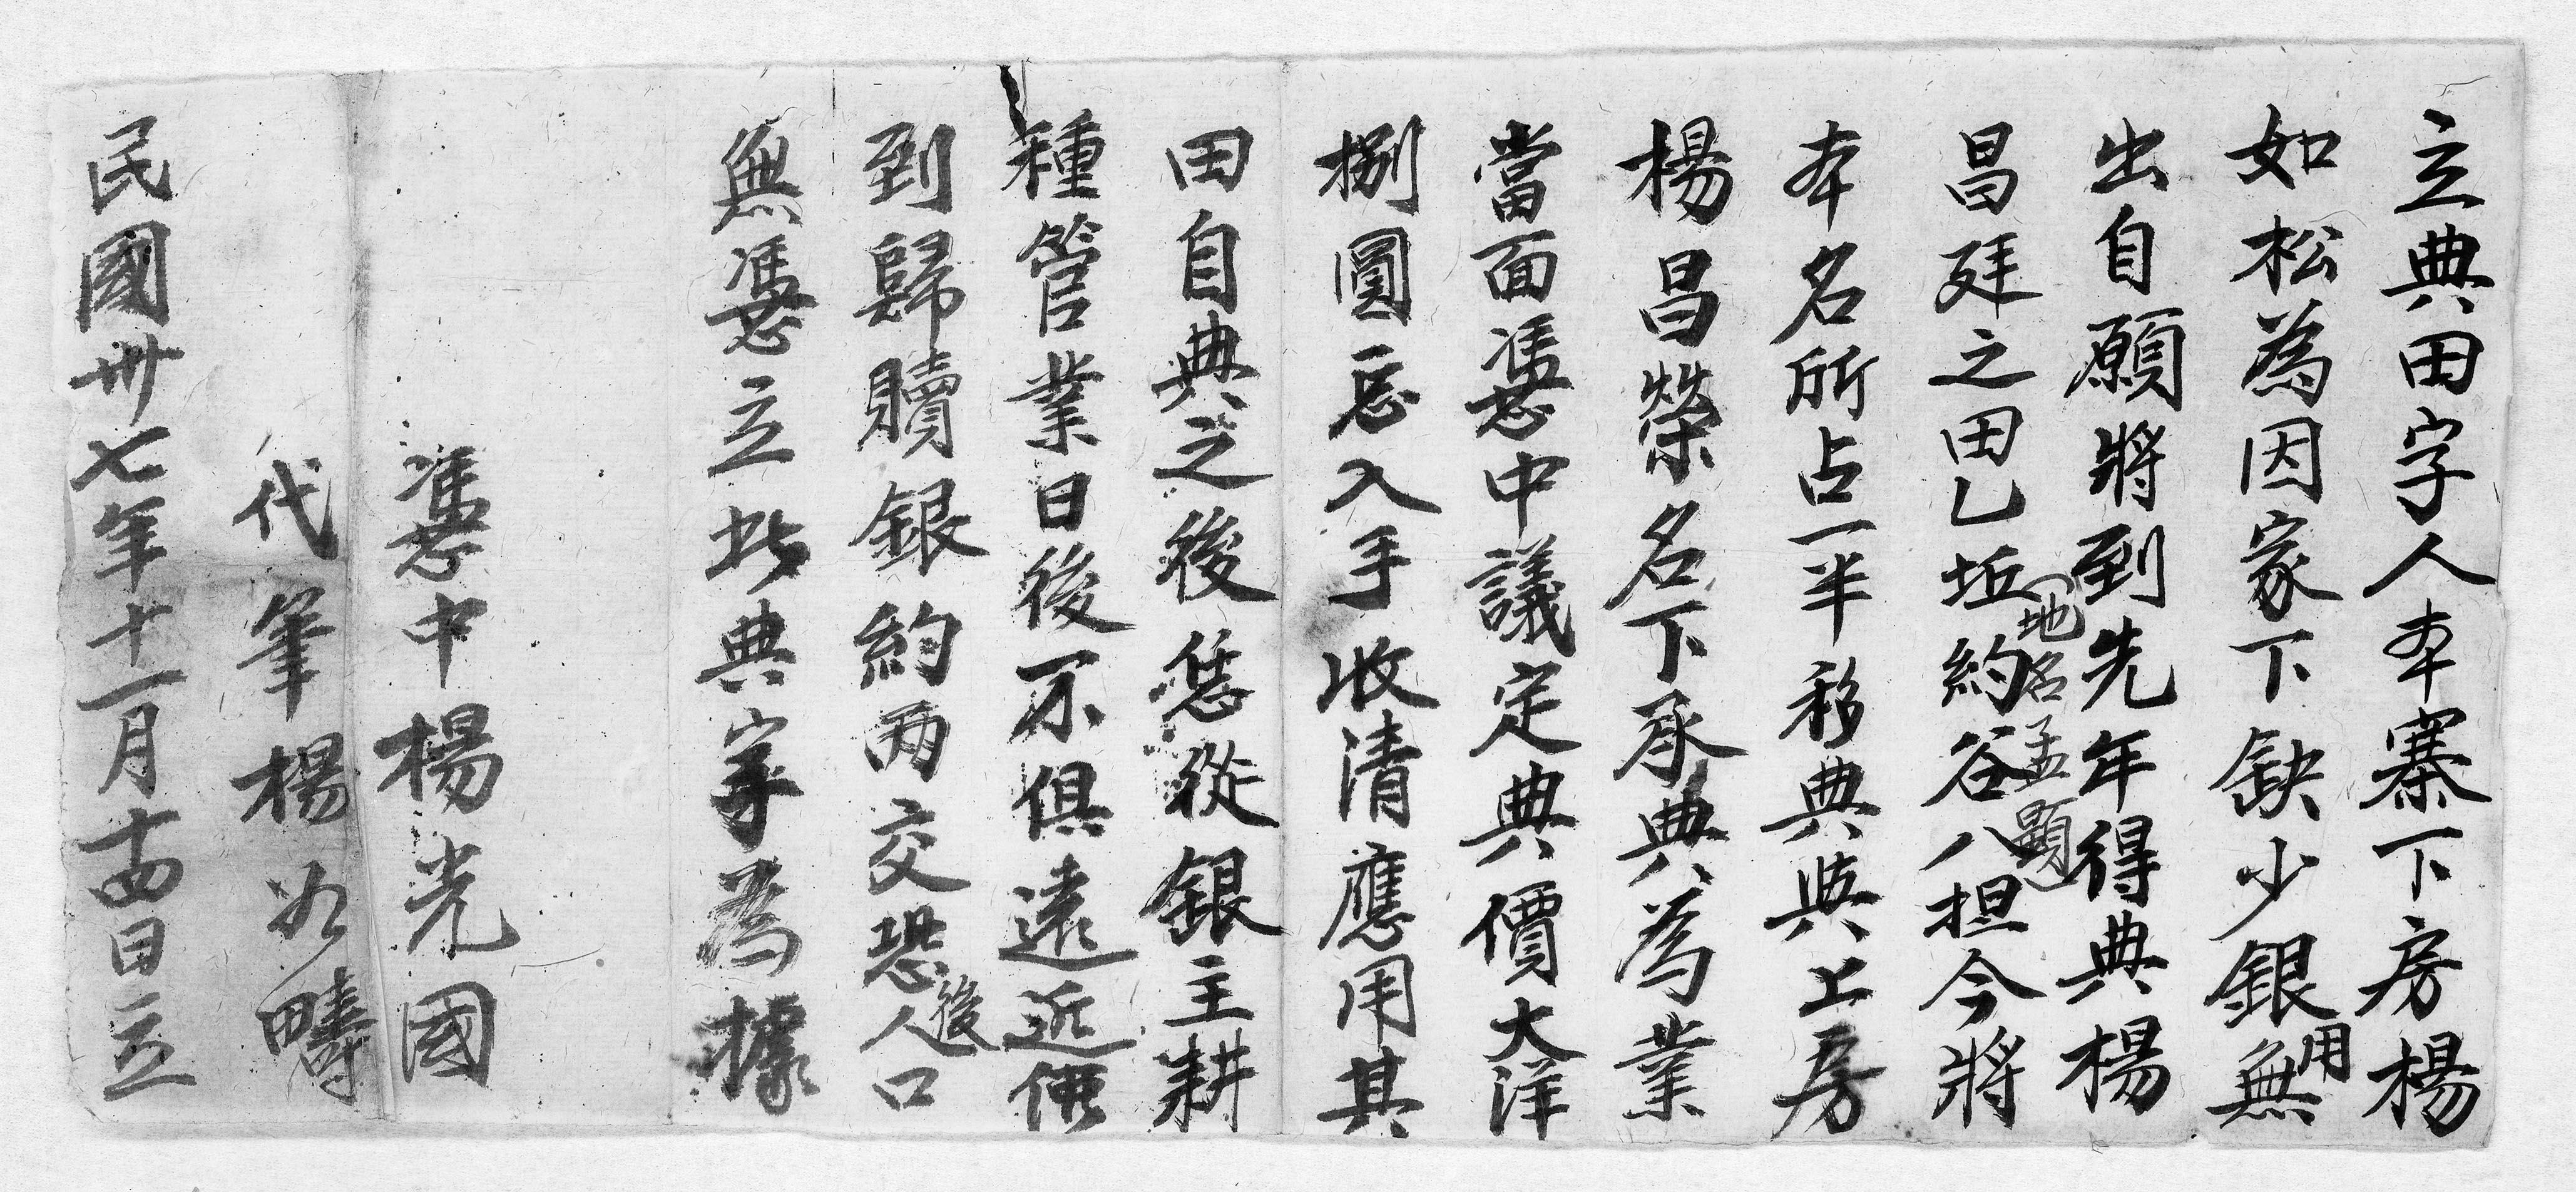 立典田字人本寨下房楊
如松為因家下缺少銀用無
出自願將到先年得典楊
地名孟顯
昌廷之田乙坵約谷八担今將
本名所占一半移典與上房
楊昌榮名下承典為業
當面憑中議定典價大洋
捌圓忘入手收清應用其
田自典之後恁從銀主耕
種管業日後不俱遠近價
到歸贖銀約兩交恐後人口
無憑立此典字為據
憑中楊光國
代筆楊
民國卅七年十一月十四日立